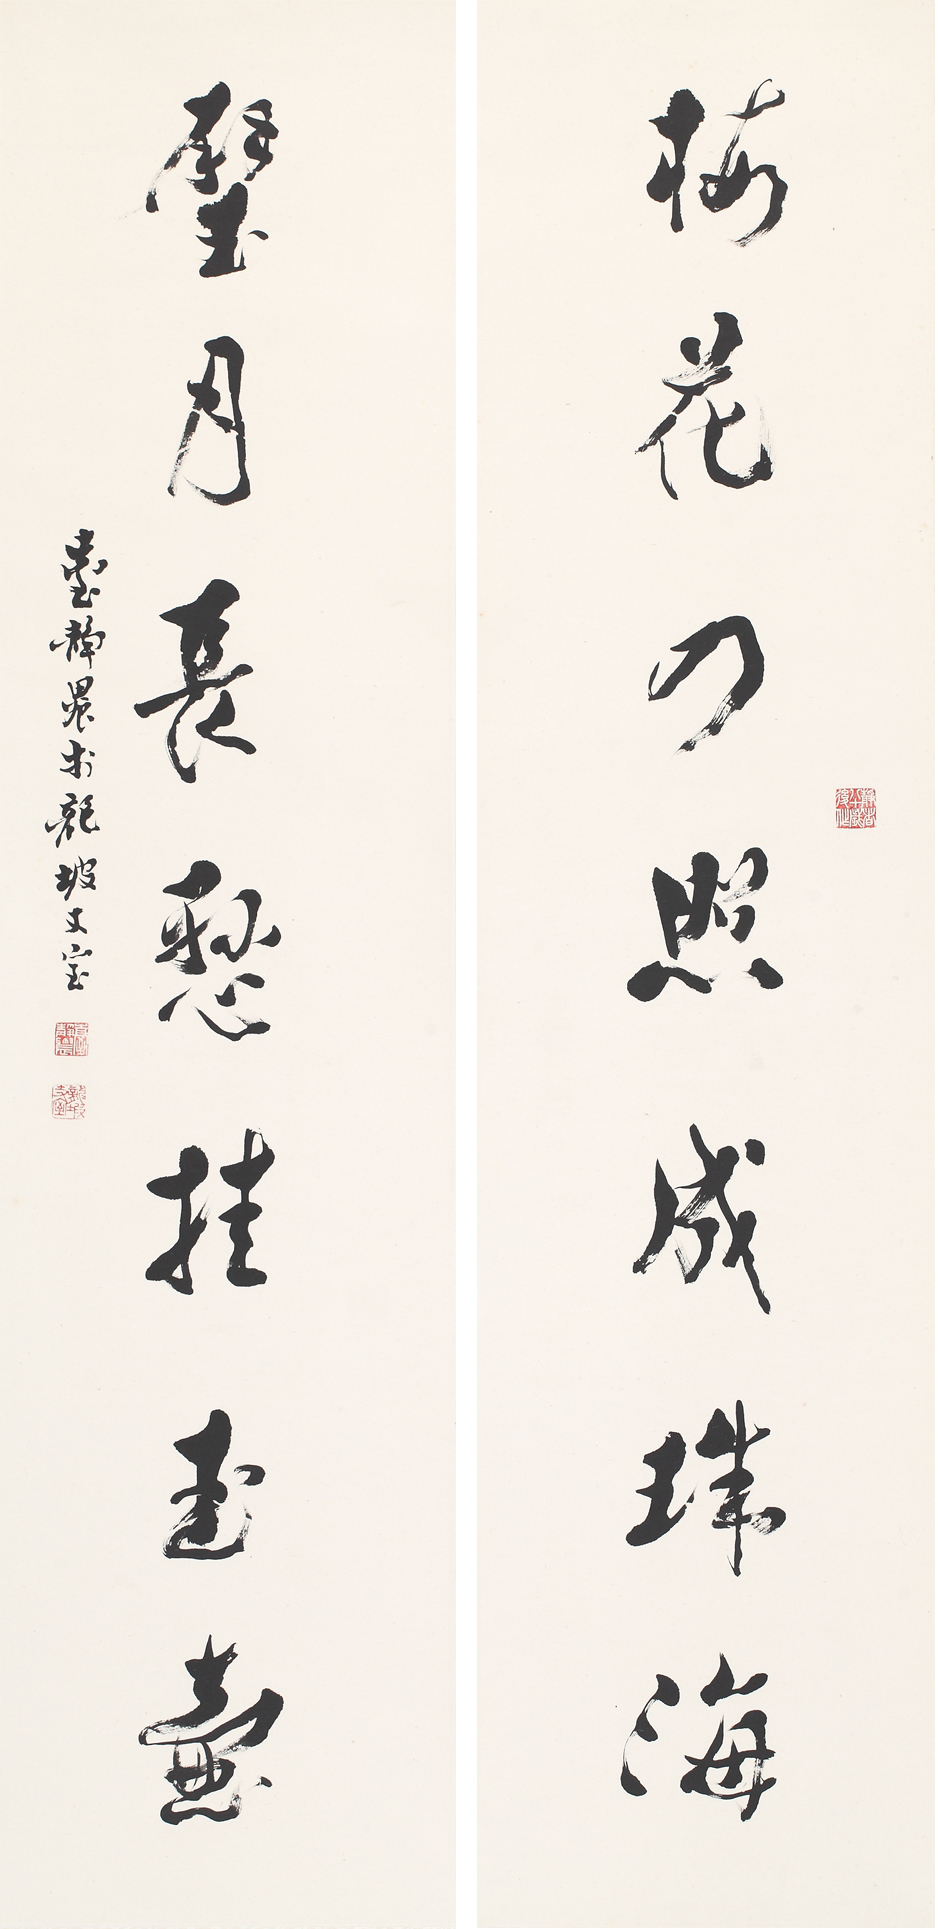 梅花乃照成珠海
璧月長愁挂玉壺
臺靜農於龍坡丈室